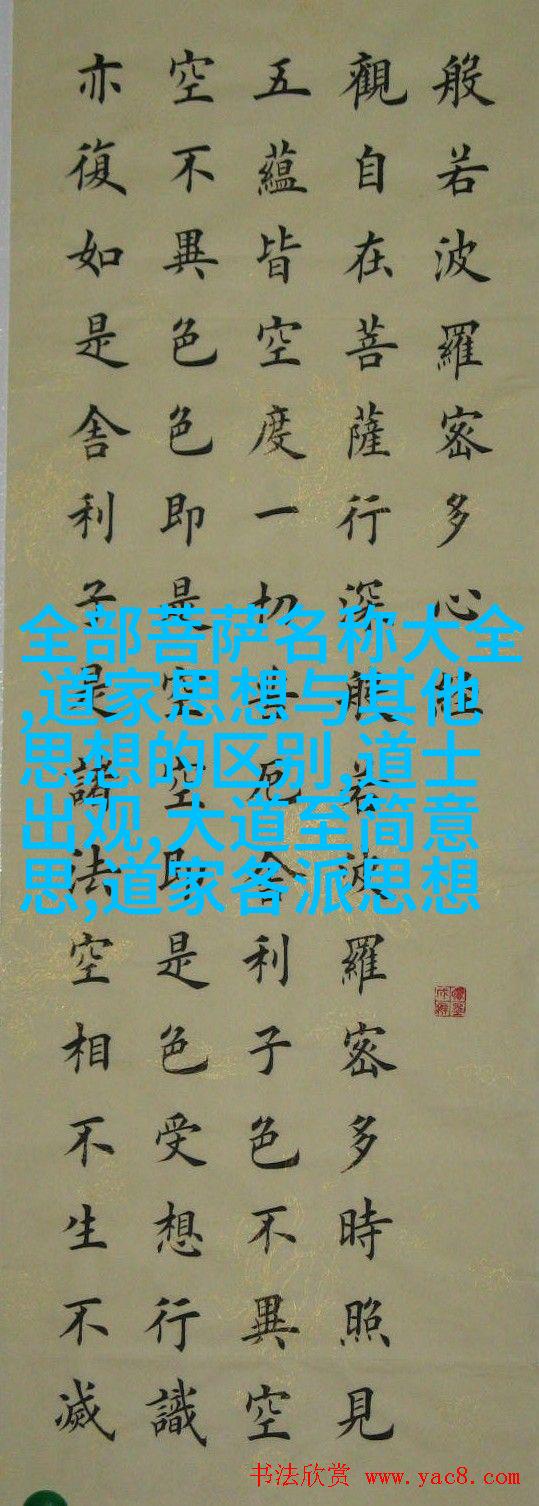 般若波羅密多心經
觀自在菩薩行深般若波羅密多時照見
五蘊皆空度一切苦厄舍利子色不異空
空不異色色即是空空即是色受想行識
亦復如是舍利子是諸法空相不生不滅
全部菩萨名称大全
,道家思想与其他
思想的区别,道士
出观,大道至简意
思,道家各派思想
书法欣赏 www.yac8.com